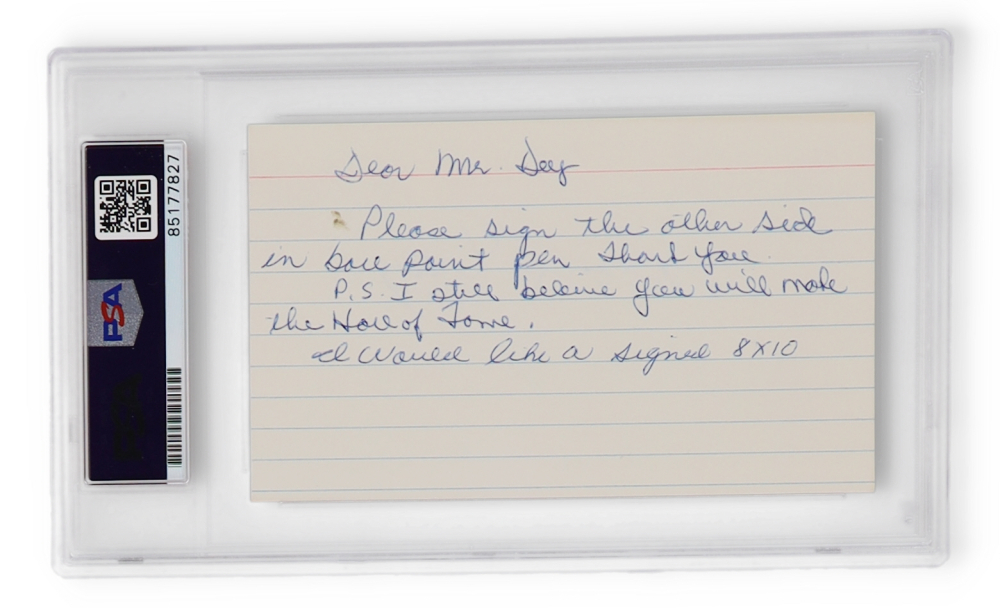 Dear Mr. Day
Please sign the other side
in ball point pen Thank you.
P.S. I still believe you will make
the Hall of Fame.
I would like a signed 8x10
85177827
PSA